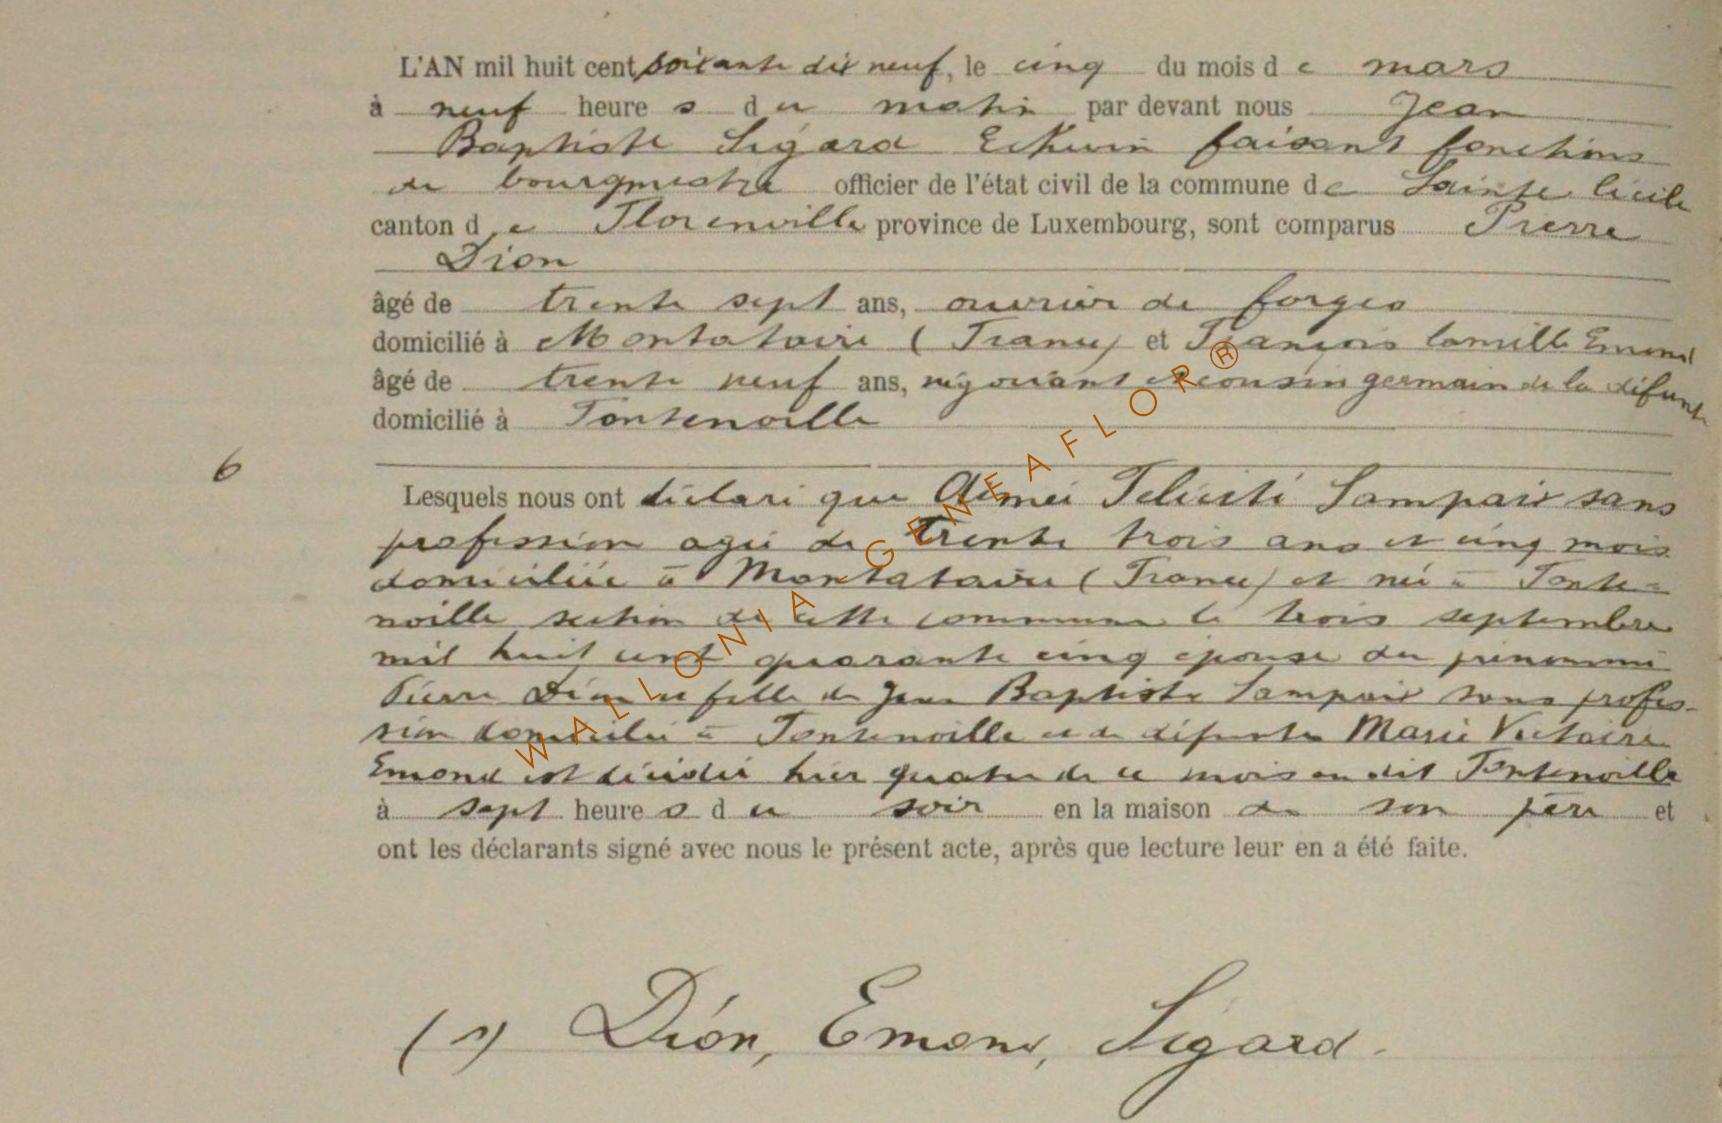 L'AN mil huit cent soixante dix neuf, le cinq du mois de mars
à neuf heures du matin par devant nous Jean
Baptiste Sigard Echevin faisant fonctions
de bourgmestre officier de l'état civil de la commune de Sainte Cécile
canton de Florenville province de Luxembourg, sont comparus Pierre
Dion
âgé de trente sept ans, ouvrier de forges
domicilié à Montataire (France) et François Camille Emond
âgé de trente neuf ans, négociant et cousin germain de la défunte
domicilié à Fontenoille
6
Lesquels nous ont déclaré que Aimée Félicité Lampair sans
profession agée de trente trois ans et cinq mois
domiciliée à Montataire (France) et née à Fonte=
noille section de cette commune le trois septembre
mil huit cent quarante cinq épouse du prénommé
Pierre Dion et fille de Jean Baptiste Lampair sans profes-
sion domicilié à Fontenoille et de défunte Marie Victoire
Emond est décédée hier quatre de ce mois au dit Fontenoille
à sept heures du soir en la maison de son père et
ont les déclarants signé avec nous le présent acte, après que lecture leur en a été faite.
(s) Dion, Emond, Sigard.
WALLONIA GENEAFLOR®